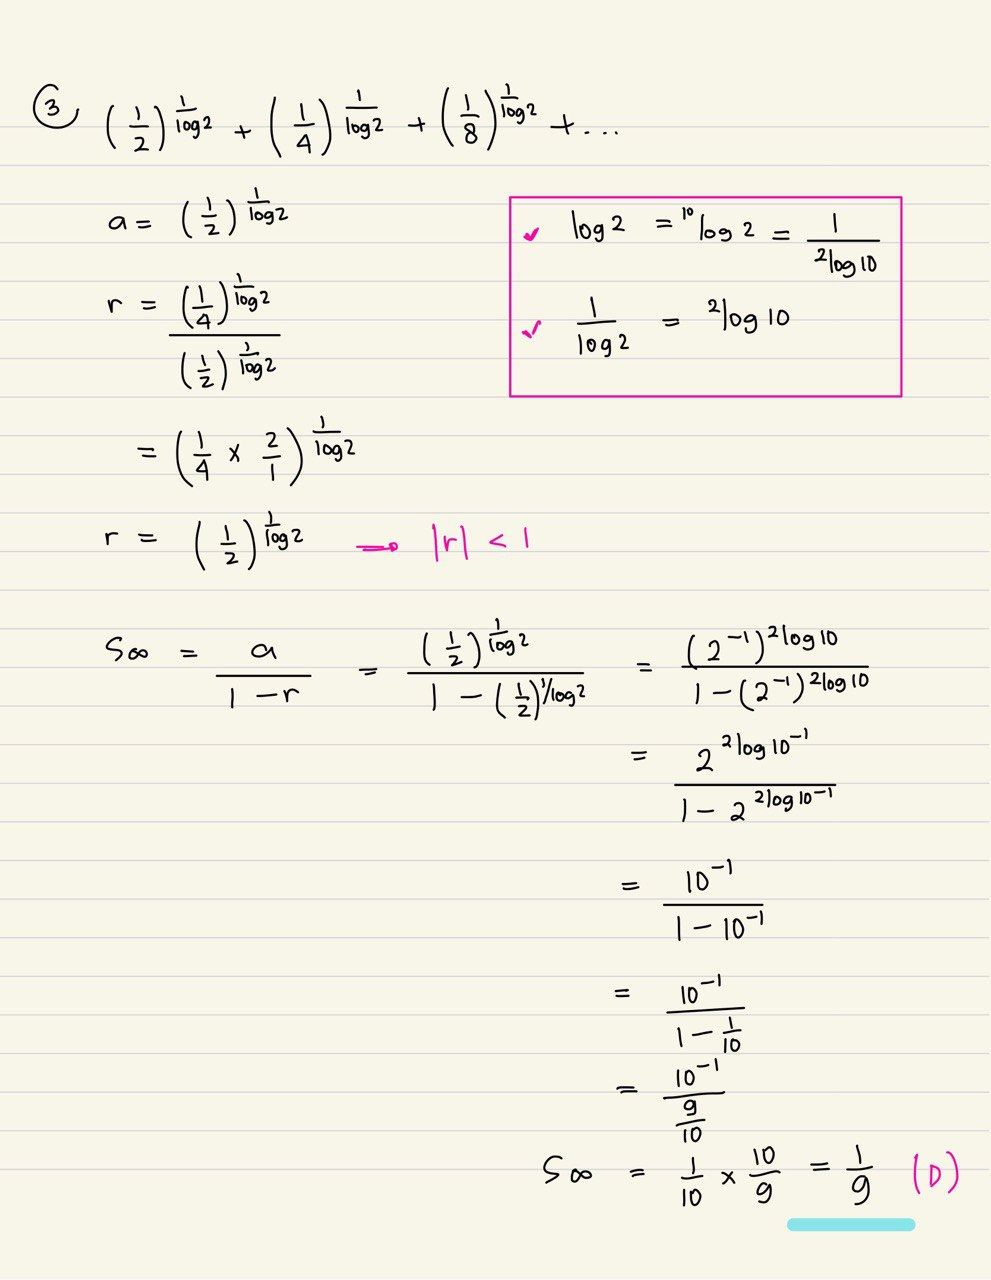 ③ (1/2)^(1/log2) + (1/4)^(1/log2) + (1/8)^(1/log2) + ...
a = (1/2)^(1/log2)
✓ log 2 = ¹⁰log 2 = 1/(²log 10)
r = (1/4)^(1/log2) / (1/2)^(1/log2)
✓ 1/(log 2) = ²log 10
= (1/4 × 2/1)^(1/log2)
r = (1/2)^(1/log2) → |r| < 1
S∞ = a/(1 − r) = (1/2)^(1/log2) / (1 − (1/2)^(1/log2)) = (2⁻¹)^(²log 10) / (1 − (2⁻¹)^(²log 10))
= 2^(²log 10⁻¹) / (1 − 2^(²log 10⁻¹))
= 10⁻¹ / (1 − 10⁻¹)
= 10⁻¹ / (1 − 1/10)
= 10⁻¹ / (9/10)
S∞ = 1/10 × 10/9 = 1/9 (D)